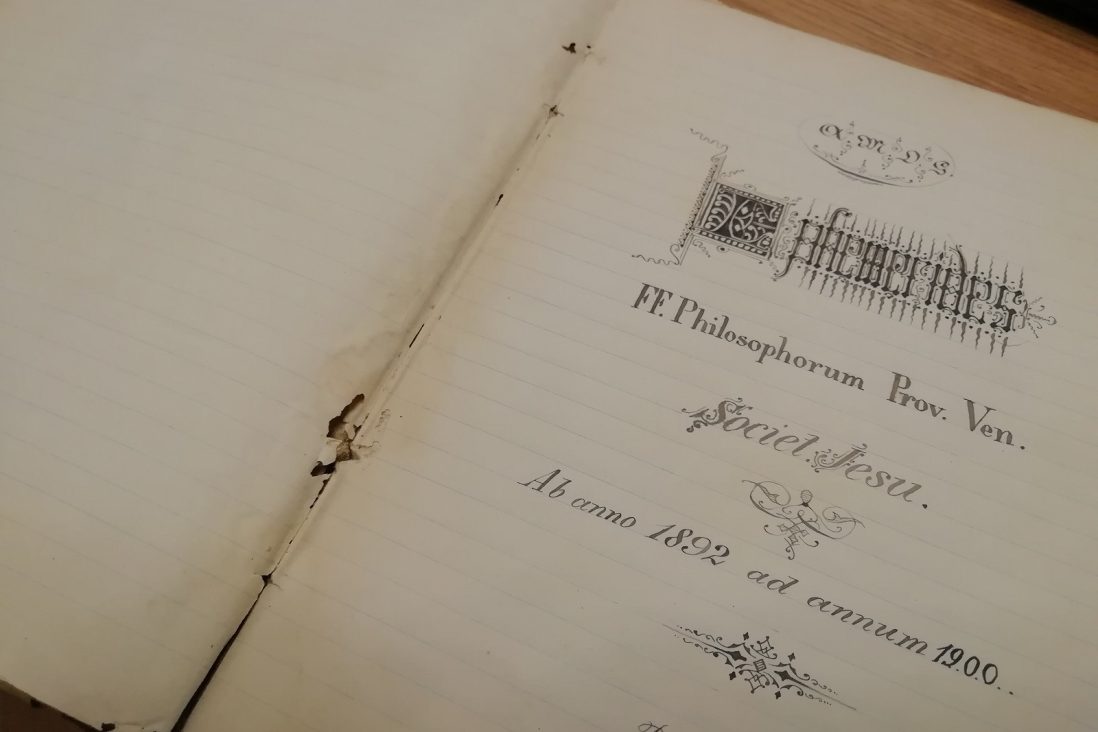 A. M. D. G.
Ephemerides
FF. Philosophorum Prov. Ven.
Societ. Jesu.
Ab anno 1892 ad annum 1900..